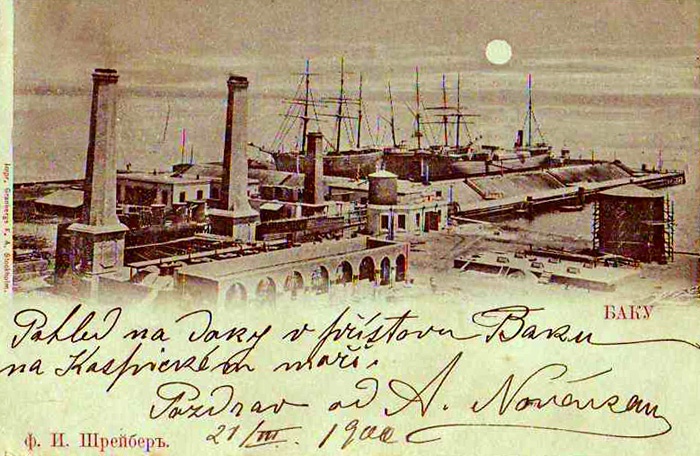 Impr. Granbergs F. A. Stockholm.
БАКУ
Pohled na doky v přístavu Baku
na Kaspickém moři.
Pozdrav od A.
21/III. 1900
Ф. И. Шрейберъ.